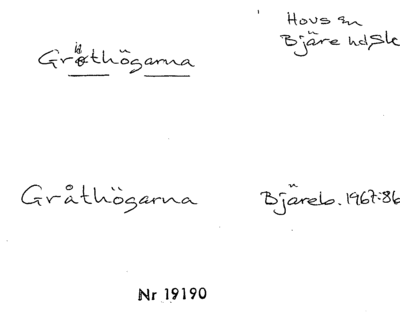 Gråthögarna
Hovs sn
Bjäre hd, Sk
Gråthögarna
Bjäreb. 1967:86
Nr 19190